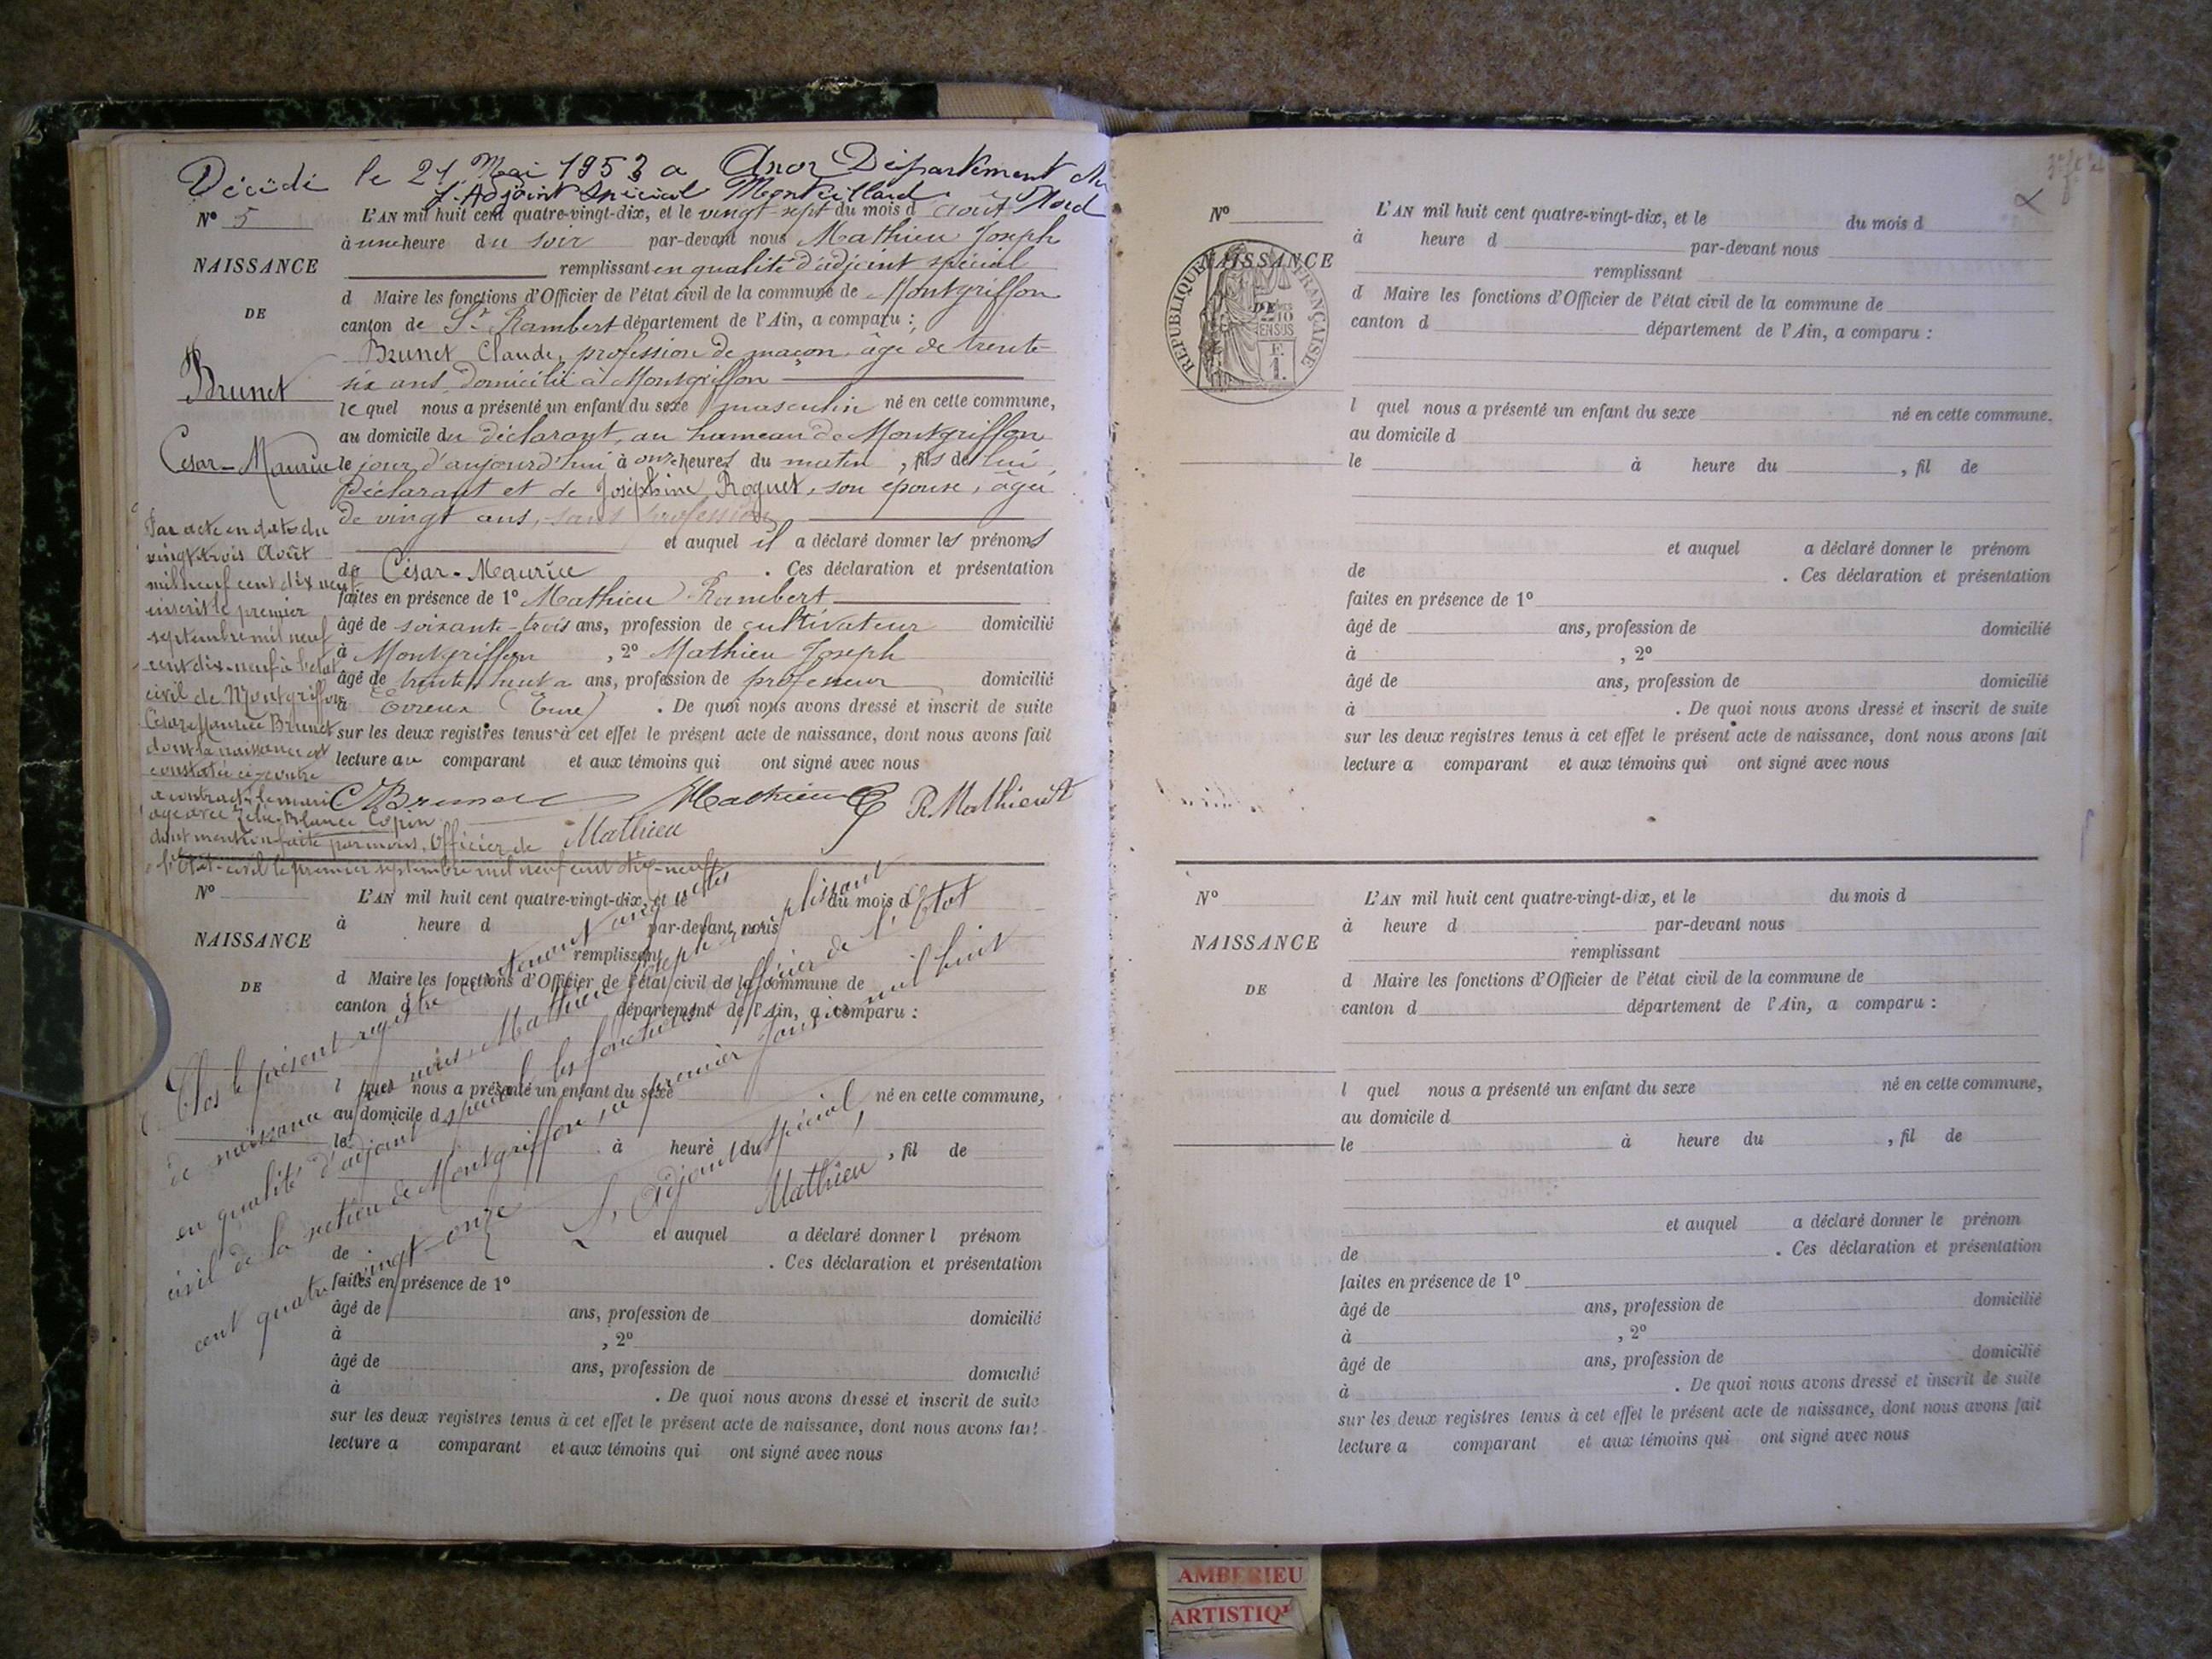 Décédé le 21 Mai 1953 a Anor Département du
L'Adjoint Spécial Monteillard Nord
N° 5
NAISSANCE
DE
Brunet
César-Maurice
L'AN mil huit cent quatre-vingt-dix, et le vingt-sept du mois d août
à une heure du soir par-devant nous Mathieu Joseph
remplissant en qualité d'adjoint spécial
d Maire les fonctions d'Officier de l'état civil de la commune de Montgriffon
canton de St Rambert département de l'Ain, a comparu :
Brunet Claude, profession de maçon, âgé de trente-
six ans domicilié à Montgriffon
lequel nous a présenté un enfant du sexe masculin né en cette commune,
au domicile du déclarant, au hameau de Montgriffon
le jour d'aujourd'hui à onze heures du matin, fils de lui,
déclarant et de Joséphine Roguet, son épouse, âgée
de vingt ans, sans profession
et auquel il a déclaré donner les prénoms
de César-Maurice. Ces déclaration et présentation
faites en présence de 1° Mathieu Rambert
âgé de soixante-trois ans, profession de cultivateur domicilié
à Montgriffon, 2° Mathieu Joseph
âgé de trente-huit ans, profession de professeur domicilié
à Evreux (Eure). De quoi nous avons dressé et inscrit de suite
sur les deux registres tenus à cet effet le présent acte de naissance, dont nous avons fait
lecture au comparant et aux témoins qui ont signé avec nous
C Brunet Mathieu R. Mathieu
Mathieu
Par acte en date du
vingt-trois Août
mil neuf cent dix neuf
inscrit le premier
septembre mil neuf
cent dix-neuf à l'état
civil de Montgriffon
César Maurice Brunet
dont la naissance est
constatée ci-contre
a contracté mari
age avec Zélie Blance Copin
dont mention faite par nous, Officier de
l'Etat-civil le premier septembre mil neuf cent dix-neuf
N°
NAISSANCE
DE
L'AN mil huit cent quatre-vingt-dix, et le du mois d
à heure d par-devant nous
remplissant
d Maire les fonctions d'Officier de l'état civil de la commune de
canton d département de l'Ain, a comparu :
l quel nous a présenté un enfant du sexe né en cette commune,
au domicile d
le à heure du , fil de
et auquel a déclaré donner l prénom
de . Ces déclaration et présentation
faites en présence de 1°
âgé de ans, profession de domicilié
à , 2°
âgé de ans, profession de domicilié
à . De quoi nous avons dressé et inscrit de suite
sur les deux registres tenus à cet effet le présent acte de naissance, dont nous avons fait
lecture a comparant et aux témoins qui ont signé avec nous
Clos le présent registre contenant cinq actes
de naissance par nous, Mathieu Joseph remplissant
en qualité d'adjoint spécial les fonctions d'officier de l'Etat
civil de la section de Montgriffon, ce premier Janvier mil huit
cent quatre-vingt-onze
L'Adjoint spécial,
Mathieu
N°
NAISSANCE
DE
REPUBLIQUE FRANÇAISE
2 10
EN SUS
F.
1.
L'AN mil huit cent quatre-vingt-dix, et le du mois d
à heure d par-devant nous
remplissant
d Maire les fonctions d'Officier de l'état civil de la commune de
canton d département de l'Ain, a comparu :
l quel nous a présenté un enfant du sexe né en cette commune.
au domicile d
le à heure du , fil de
et auquel a déclaré donner le prénom
de . Ces déclaration et présentation
faites en présence de 1°
âgé de ans, profession de domicilié
à , 2°
âgé de ans, profession de domicilié
à . De quoi nous avons dressé et inscrit de suite
sur les deux registres tenus à cet effet le présent acte de naissance, dont nous avons fait
lecture a comparant et aux témoins qui ont signé avec nous
N°
NAISSANCE
DE
L'AN mil huit cent quatre-vingt-dix, et le du mois d
à heure d par-devant nous
remplissant
d Maire les fonctions d'Officier de l'état civil de la commune de
canton d département de l'Ain, a comparu :
l quel nous a présenté un enfant du sexe né en cette commune,
au domicile d
le à heure du , fil de
et auquel a déclaré donner le prénom
de . Ces déclaration et présentation
faites en présence de 1°
âgé de ans, profession de domicilié
à , 2°
âgé de ans, profession de domicilié
à . De quoi nous avons dressé et inscrit de suite
sur les deux registres tenus à cet effet le présent acte de naissance, dont nous avons fait
lecture a comparant et aux témoins qui ont signé avec nous
AMBERIEU
ARTISTIQ